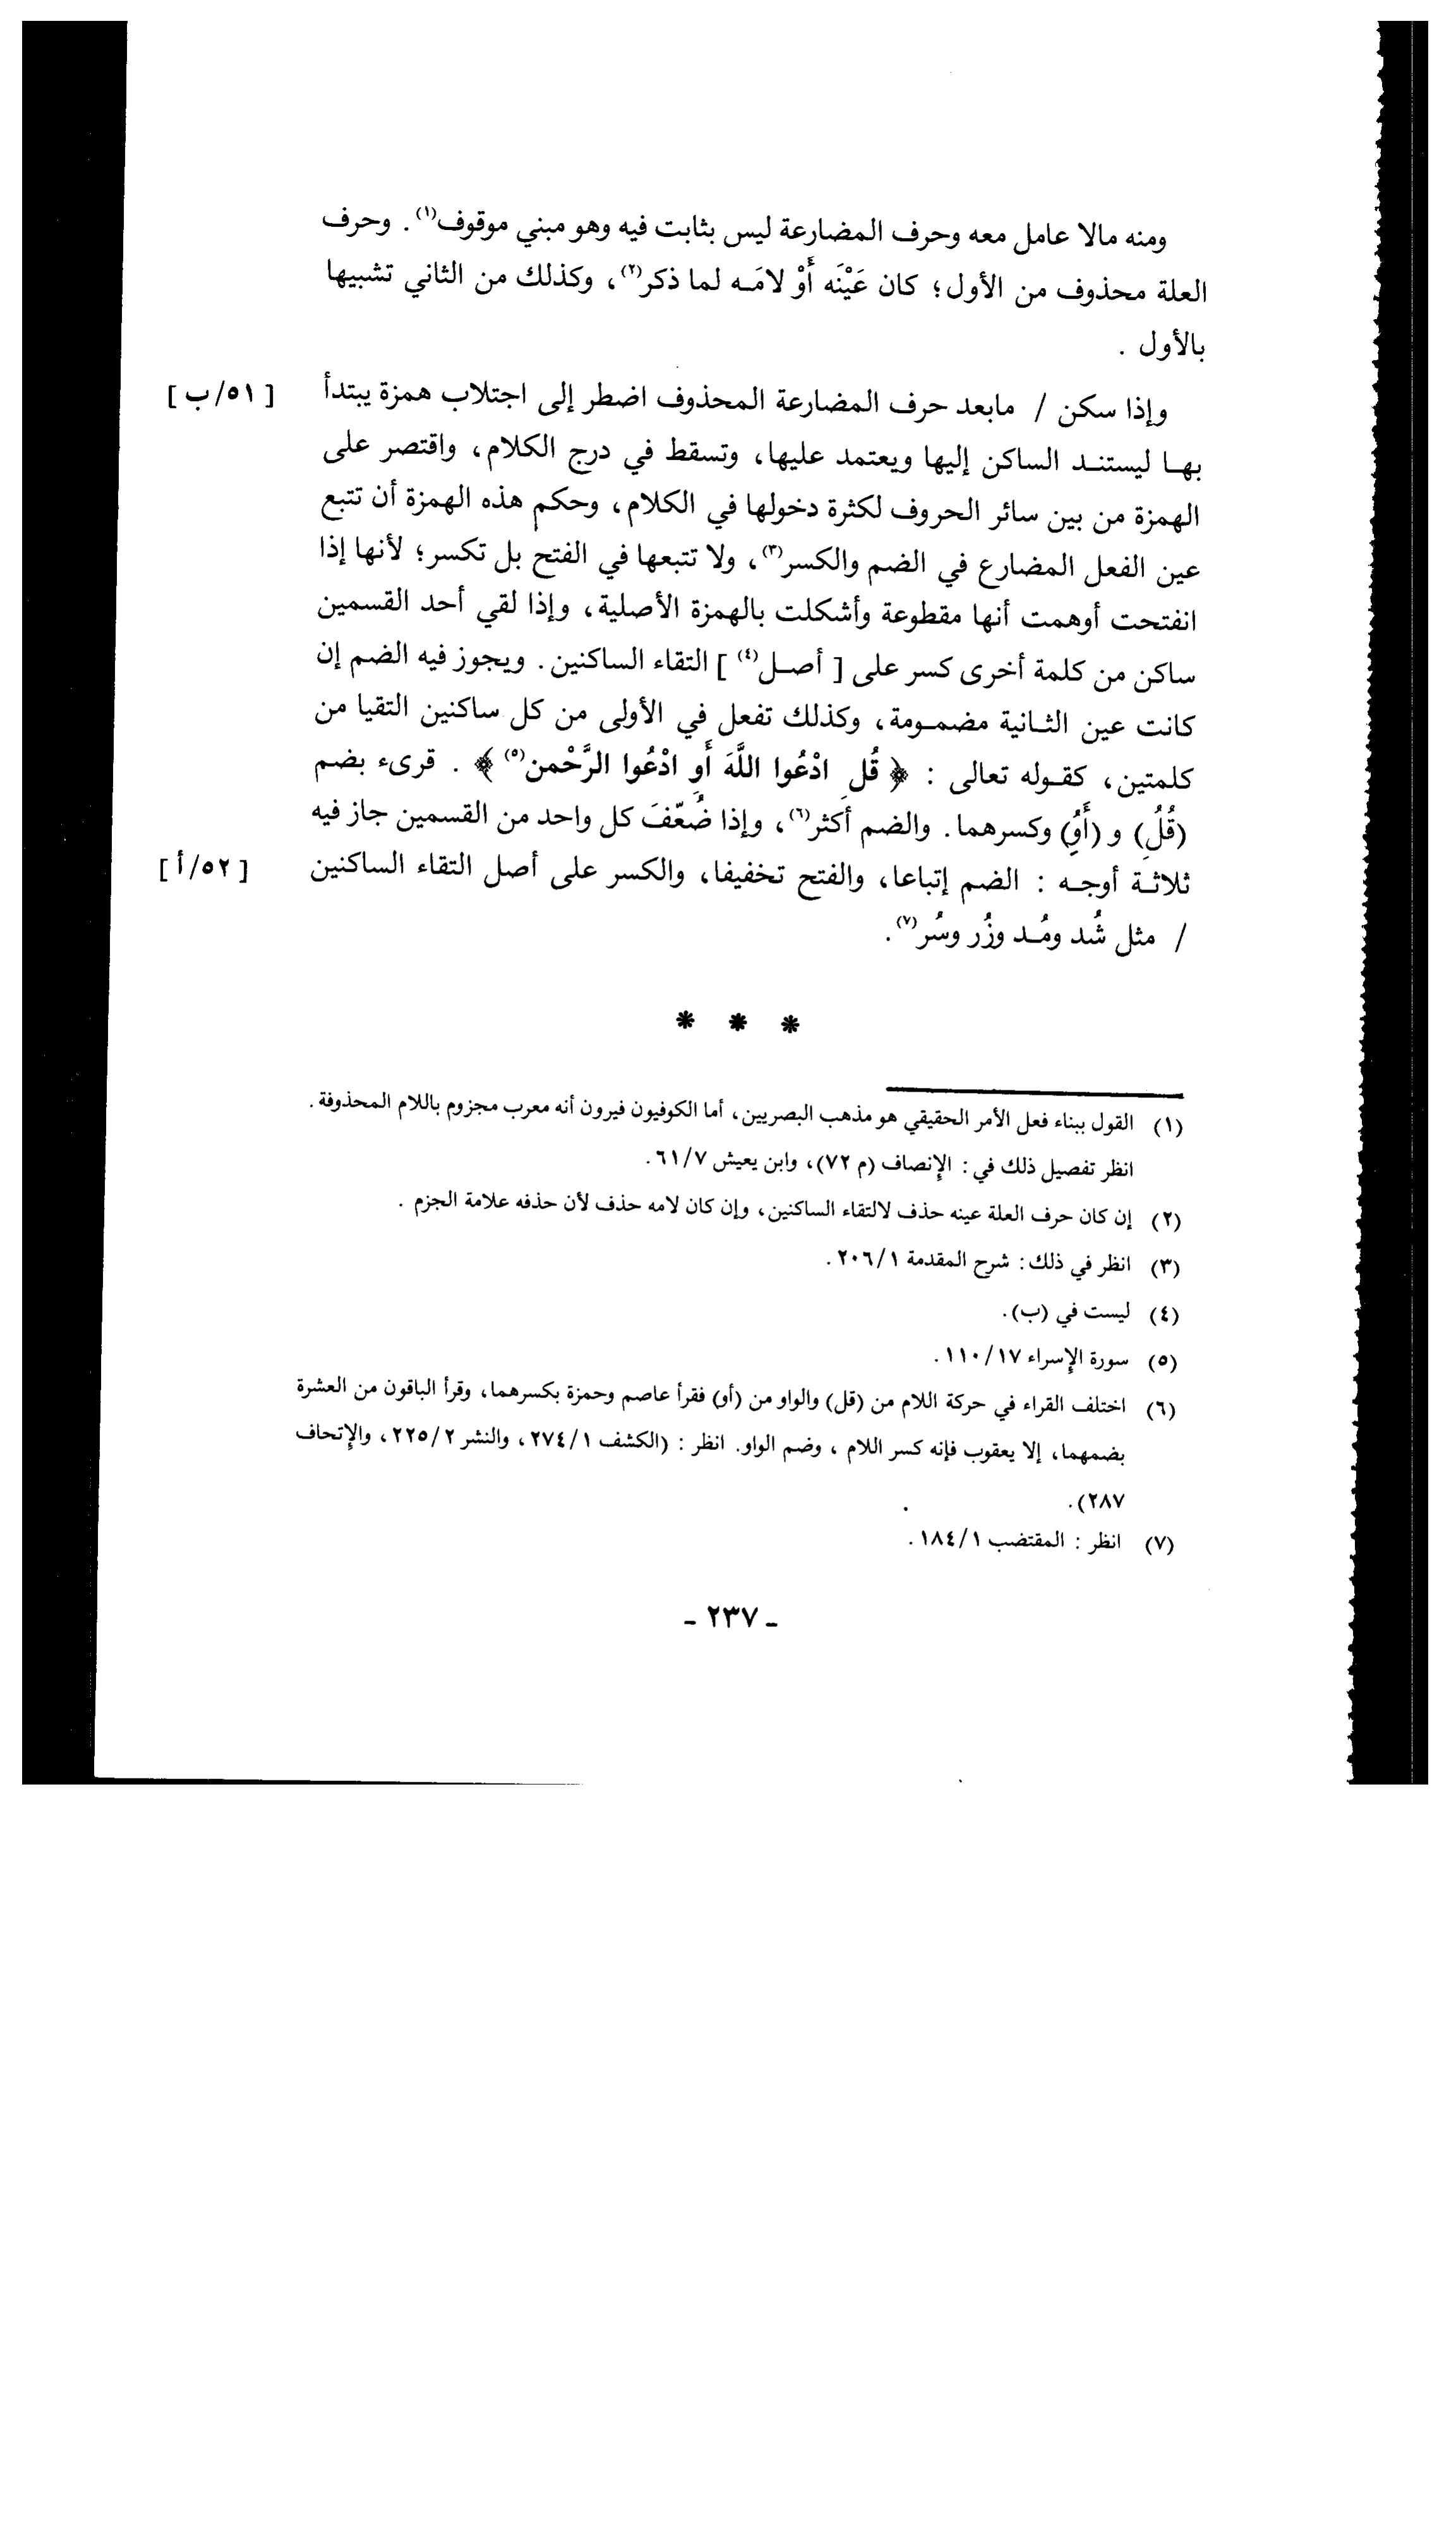 ومنه مالا عامل معه وحرف المضارعة ليس بثابت فيه وهو مبني موقوف(١). وحرف
العلة محذوف من الأول؛ كان عَيْنَه أَوْ لامَـه لما ذكر(٢)، وكذلك من الثاني تشبيها
بالأول .
وإذا سكن / مابعد حرف المضارعة المحذوف اضطر إلى اجتلاب همزة يبتدأ [ ٥١/ب ]
بهـا ليستنـد الساكن إليها ويعتمد عليها، وتسقط في درج الكلام، واقتصر على
الهمزة من بين سائر الحروف لكثرة دخولها في الكلام، وحكم هذه الهمزة أن تتبع
عين الفعل المضارع في الضم والكسر(٣)، ولا تتبعها في الفتح بل تكسر؛ لأنها إذا
انفتحت أوهمت أنها مقطوعة وأشكلت بالهمزة الأصلية، وإذا لقي أحد القسمين
ساكن من كلمة أخرى كسر على [ أصـل(٤) ] التقاء الساكنين. ويجوز فيه الضم إن
كانت عين الثـانية مضمـومة، وكذلك تفعل في الأولى من كل ساكنين التقيا من
كلمتين، كقـوله تعالى : ﴿ قُلِ ادْعُوا اللَّهَ أَوِ ادْعُوا الرَّحْمن(٥) ﴾ . قرىء بضم
(قُلُِ) و (أَوُِ) وكسرهما. والضم أكثر(٦)، وإذا ضُعّفَ كل واحد من القسمين جاز فيه
ثلاثـة أوجـه : الضم إتباعا، والفتح تخفيفا، والكسر على أصل التقاء الساكنين [ ٥٢/أ ]
/ مثل شُد ومُـد وزُر وسُر(٧).
* * *
(١) القول ببناء فعل الأمر الحقيقي هو مذهب البصريين، أما الكوفيون فيرون أنه معرب مجزوم باللام المحذوفة.
انظر تفصيل ذلك في: الإنصاف (م ٧٢)، وابن يعيش ٦١/٧.
(٢) إن كان حرف العلة عينه حذف لالتقاء الساكنين، وإن كان لامه حذف لأن حذفه علامة الجزم .
(٣) انظر في ذلك: شرح المقدمة ٢٠٦/١.
(٤) ليست في (ب).
(٥) سورة الإسراء ١١٠/١٧.
(٦) اختلف القراء في حركة اللام من (قل) والواو من (أو) فقرأ عاصم وحمزة بكسرهما، وقرأ الباقون من العشرة
بضمهما، إلا يعقوب فإنه كسر اللام ، وضم الواو. انظر : (الكشف ٢٧٤/١، والنشر ٢٢٥/٢، والإتحاف
٢٨٧).
(٧) انظر : المقتضب ١٨٤/١.
ـ ٢٣٧ ـ